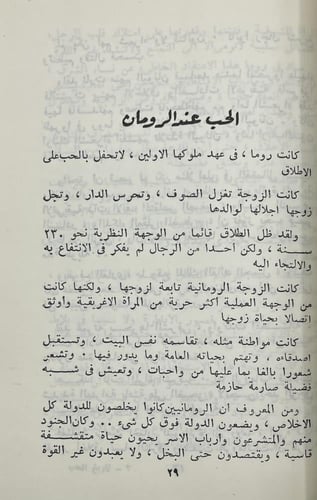 الحب عند الرومان
كانت روما ، فى عهد ملوكها الاولين ، لاتحفل بالحب على
الاطلاق
كانت الزوجة تغزل الصوف ، وتحرس الدار ، وتجل
زوجها اجلالها لوالدها
ولقد ظل الطلاق قائما من الوجهة النظرية نحو ٢٣٠
سنة ، ولكن أحدا من الرجال لم يفكر فى الانتفاع به
والالتجاء اليه
كانت الزوجة الرومانية تابعة لزوجها ، ولكنها كانت
من الوجهة العملية أكثر حرية من المرأة الاغريقية وأوثق
اتصالا بحياة زوجها
كانت مواطنة مثله ، تقاسمه نفس البيت ، وتستقبل
أصدقاءه ، وتهتم بحياته العامة وما يدور فيها . وتشعر
شعورا بالغا بما عليها من واجبات ، وتعيش فى شبه
فضيلة صارمة حازمة
ومن المعروف ان الرومانيين كانوا يخلصون للدولة كل
الاخلاص ، ويضعون الدولة فوق كل شىء .. وكان الجنود
منهم والمتشرعون وأرباب الاسر يحيون حياة متقشفة
قاسية ، ويقتصدون حتى البخل ، ولا يعبدون غير القوة
٢٩